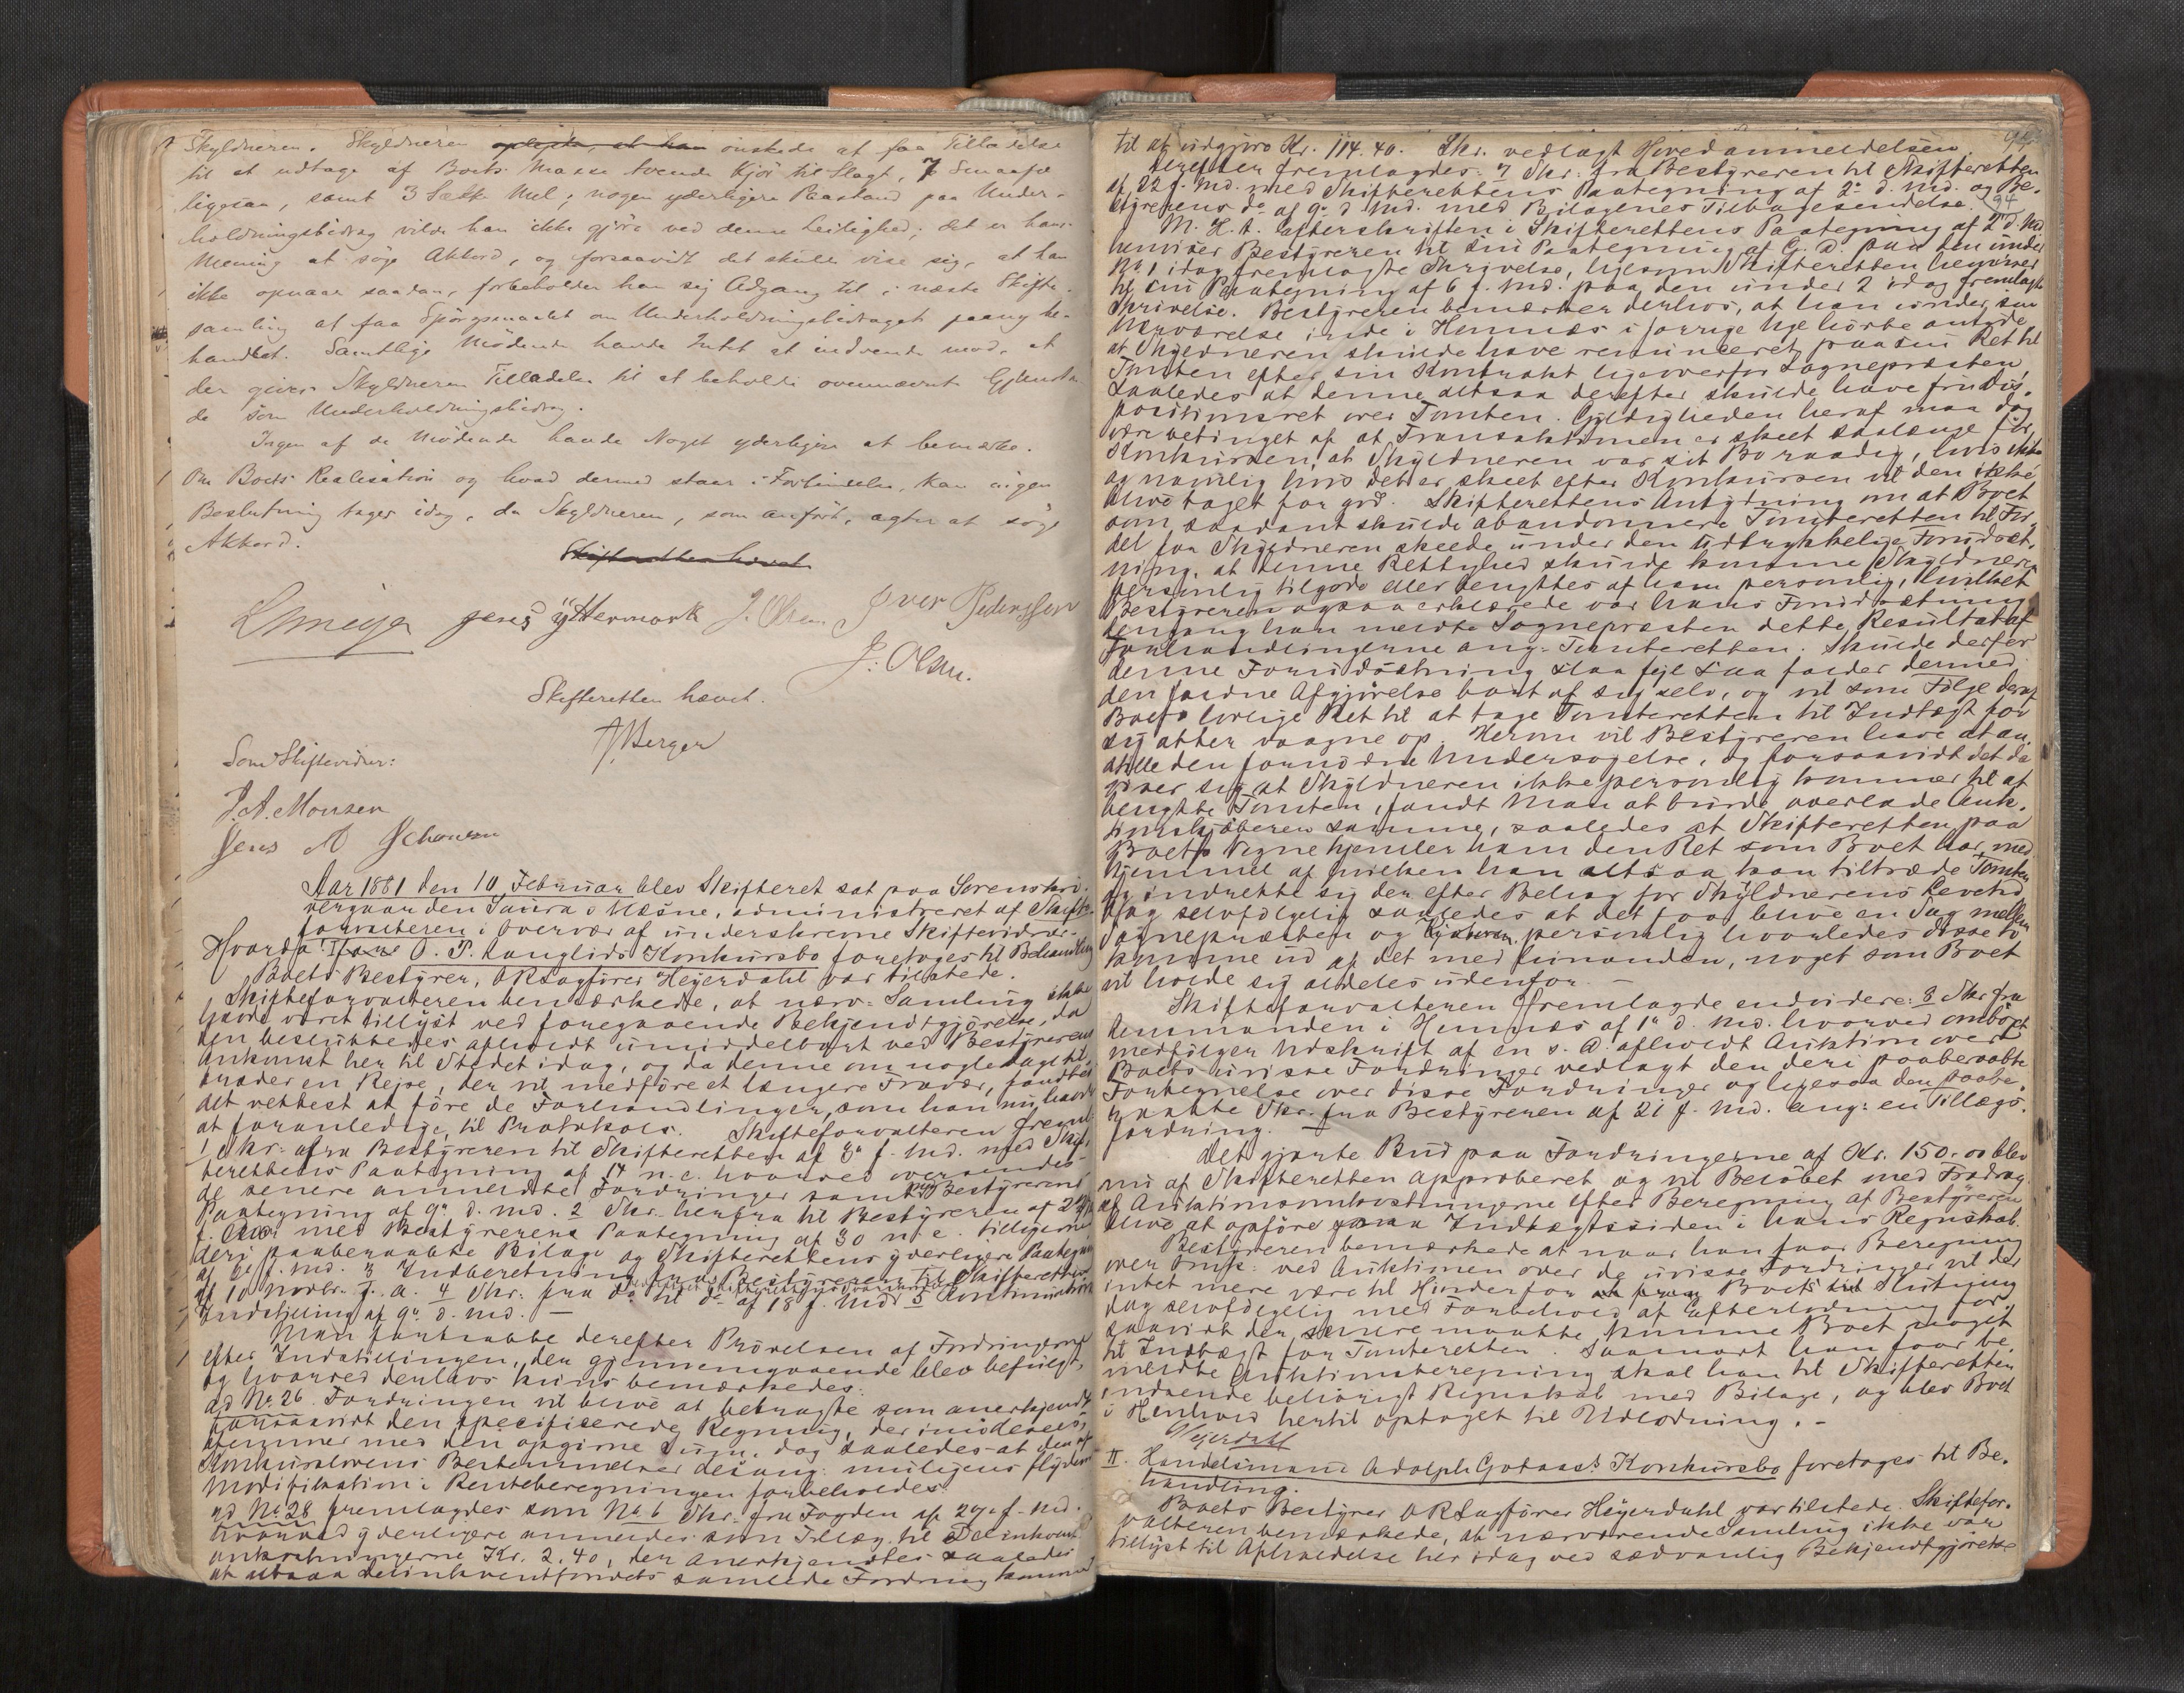 Skyldneren. Skyldneren oplyste, at han ønskede at faa Tilladelse
til at udtage af Boets Masse tvende Kjør til Slagt, 7 Smaafæ
ligesaa, samt 3 Sække Mel; nogen yderligere Paastand paa Under-
holdningsbidrag vilde han ikke gjøre ved denne Leilighed; det er hans
Mening at søge Akkord, og forsaavidt det skulde vise sig, at han
ikke opnaar saadan, forbeholder han sig Adgang til i næste Skifte-
samling at faa Spørgsmaalet om Underholdningsbidraget paany be-
handlet. Samtlige Mødende havde Intet at indvende mod, at
der gives Skyldneren Tilladelse til at beholde ovennævnte Gjenstan-
de som Underholdningsbidrag.
Ingen af de Mødende havde Noget yderligere at bemærke.
Om Boets Realisation og hvad dermed staar i Forbindelse, kan ingen
Beslutning tages idag, da Skyldneren, som anført, agter at søge
Akkord.
Skifteretten hævet
Jens Yttermark J. Olsen Iver Pedersen
J. Olsen.
Skifteretten hævet.
J Berger
Som Skiftevidner:
P. A. Monsen
Jens A Johansen
Aar 1881 den 10 Februar blev Skifteret sat paa Sorenskri-
vergaarden Saura i Næsne, administreret af Skifte-
forvalteren i Overvær af underskrevne Skiftevidner.
Hvorda: O. P. Langlids Konkursbo foretoges til Behandling
Boets Bestyrer, ORSagfører Heyerdahl var tilstede.
Skifteforvalteren bemærkede, at nærv. Samling ikke
havde været tillyst ved foregaaende Bekjendtgjørelse, da
den besluttedes afholdt umiddelbart ved Bestyrerens
Ankomst her til Stedet idag, og da denne om nogle Dage til-
træder en Rejse, der vil medføre et længere Fravær, fandtes
det rettest at føre de Forhandlinger, som han nu havde
at foranledige, til Protokols. Skifteforvalteren freml.
1 Skr. fra Bestyreren til Skifteretten af 3 f. Md. med Skif-
terettens Paategning af 14 n. e. hvorved oversendes
de senere anmeldte Fordringer samt Bestyrerens
Paategning af 9 d. Md. 2 Skr. herfra til Bestyreren af 29
f. Md. med Bestyrerens Paategning af 30 n. e. tilligemed
deri paaberaabte Bilage og Skifterettens yderligere Paategning
af 6 f. Md. 3 Indberetning fra Bestyreren til Skifteretten
af 10 Novbr. f. A. 4 Skr. fra do til do af 18 f. Md. 5
Indstilling af 9 d. Md. —
Man fortsatte derefter Prøvelsen af Fordringerne
efter Indstillingen, der gjennemgaaende blev befulgt,
og hvorved denhavs kuns bemærkedes:
ad No 26. Fordringen vil blive at betragte som anerkjendt
forsaavidt den specificerede Regning, der imødesees,
stemmer med den opgivne Sum, dog saaledes at den af
Konkurslovens Bestemmelser desang. muligens flydende
Modifikation i Renteberegningen forbeholdes.
ad No 28 fremlagdes som No 6 Skr. fra Fogden af 29 f. Md.
hvorved yderligere anmeldes som Tillæg til Delinkvent
omkostningerne Kr. 2,40, der anerkjendtes saaledes
at altsaa Delinkventfondets samlede Fordring kommer
94
til at udgjøre Kr. 114.40. Skr. vedlagt Hovedanmeldelsen.
Derefter fremlagdes: 7 Skr. fra Bestyreren til Skifteretten
af 22 f. Md. med Skifterettens Paategning af 2 d. Md. og Be-
styrerens do af 9 d Md. med Bilagenes Tilbagesendelse.
94
M. H. t. Efterskriften i Skifterettens Paategning af 2 d. Md.
henviser Bestyreren til sin Paategning af G. D. paa den under
No 1 idag fremlagte Skrivelse, ligesom Skifteretten henviser
til sin Paategning af 6 f. Md. paa den under 2 idag fremlagte
Skrivelse. Bestyreren bemærker derhos, at han under sin
Nærværelse inde i Hemnæs i forrige Uge hørte antyde
at Skyldneren skulde have renunceret paa sin Ret til
Tomten efter sin Kontrakt ligeoverfor Sognepræsten
saaledes at denne altsaa derefter skulde have fri Dis-
positionsret over Tomten. Gyldigheden heraf maa dog
være betinget af at Transaktionen er skeet saalænge før
Konkursen, at Skyldneren var sit Bo raadig, hvis ikke
og navnlig hvis det er skeet efter Konkursen vil den ikke
blive taget for god. Skifterettens Antydning om at Boet
som saadant skulde abandonnere Tomteretten til For-
del for Skyldneren skeede under den udtrykkelige Forudsæt-
ning, at denne Rettighed skulde komme Skyldneren
personlig tilgode eller benyttes af ham personlig, hvilket
Bestyreren ogsaa erklærede var hans Forudsætning
dengang han meldte Sognepræsten dette Resultat af
Forhandlingerne ang. Tomteretten. Skulde derfor
denne Forudsætning slaa fejl saa falder dermed
den fordne Afgjørelse bort af sig selv, og vil som Følge deraf
Boets lovlige Ret til at tage Tomteretten til Indtægt for
sig atter vaagne op. Herom vil Bestyreren have at an-
stille den fornødne Undersøgelse, og forsaavidt det da
viser sig at Skyldneren ikke personlig kommer til at
benytte Tomten, fandt Man at burde overlade Auk-
tionskjøberen samme, saaledes at Skifteretten paa
Boets Vegne hjemler ham den Ret som Boet har, med
Hjemmel af hvilken han altsaa kan tiltræde Tomten
og indrette sig der efter Behag for Skyldnerens Levetid
dog selvfølgelig saaledes at det faar blive en Sag mellem
Sognepræsten og Kjøberen personlig hvorledes disse to
komme ud af det med hinanden, noget som Boet
vil holde sig aldeles udenfor. —
Skifteforvalteren fremlagde endvidere: 8 Skr. fra
Lensmanden i Hemnæs af 1 d. Md. hvorved ombøst
medfølger Udskrift af en s. D. afholdt Auktion over
Boets uvisse Fordringer vedlagt den deri paaberaabte
Fortegnelse over disse Fordringer og ligesaa den paabe-
raabte Skr. fra Bestyreren af 21 f. Md. ang: en Tillægs-
fordring. —
Det gjorte Bud paa Fordringerne af Kr. 150.00 blev
nu af Skifteretten approberet og vil Beløbet med Fradrag
af Auktionsomkostningerne efter Beregning af Bestyreren
blive at opføre paa Indtægtssiden i hans Regnskab.
Bestyreren bemærkede at naar han faar Beregning
over Omk: ved Auktionen over de uvisse Fordringer vil der
intet mere være til Hinder for Boets Slutning
dog selvfølgelig med Forbehold af Efterlodning for-
saavidt der senere maatte komme Boet noget
til Indtægt for Tomteretten. Saasnart han faar be-
meldte Auktionsberegning skal han til Skifteretten
indsende behørigt Regnskab med Bilage, og blev Boet
i Henhold hertil optaget til Udlodning. —
Heyerdahl
II. Handelsmand Adolph Gotaas's Konkursbo foretoges til Be-
handling.
Boets Bestyrer ORSagfører Heyerdahl var tilstede. Skiftefor-
valteren bemærkede, at nærværende Samling ikke var
tillyst til Afholdelse her idag ved sædvanlig Bekjendtgjørelse